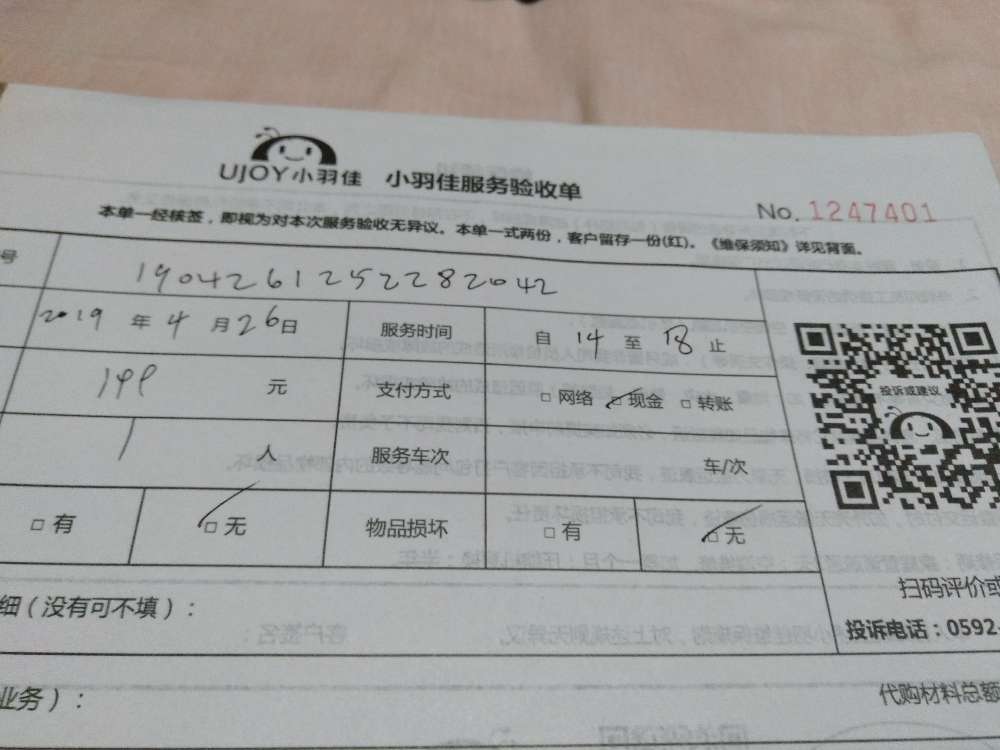 UJOY小羽佳 小羽佳服务验收单
No. 1247401
本单一经核签，即视为对本次服务验收无异议。本单一式两份，客户留存一份(红)。《维保须知》详见背面。
号 1904261252282042
2019 年 4 月 26 日 服务时间 自 14 至 18 止
199 元 支付方式 □ 网络 ☑ 现金 □ 转账
投诉或建议
1 人 服务车次 车/次
□ 有 ☑ 无 物品损坏 □ 有 ☑ 无
扫码评价或
细（没有可不填）：
投诉电话：0592-
业务）：
代购材料总额